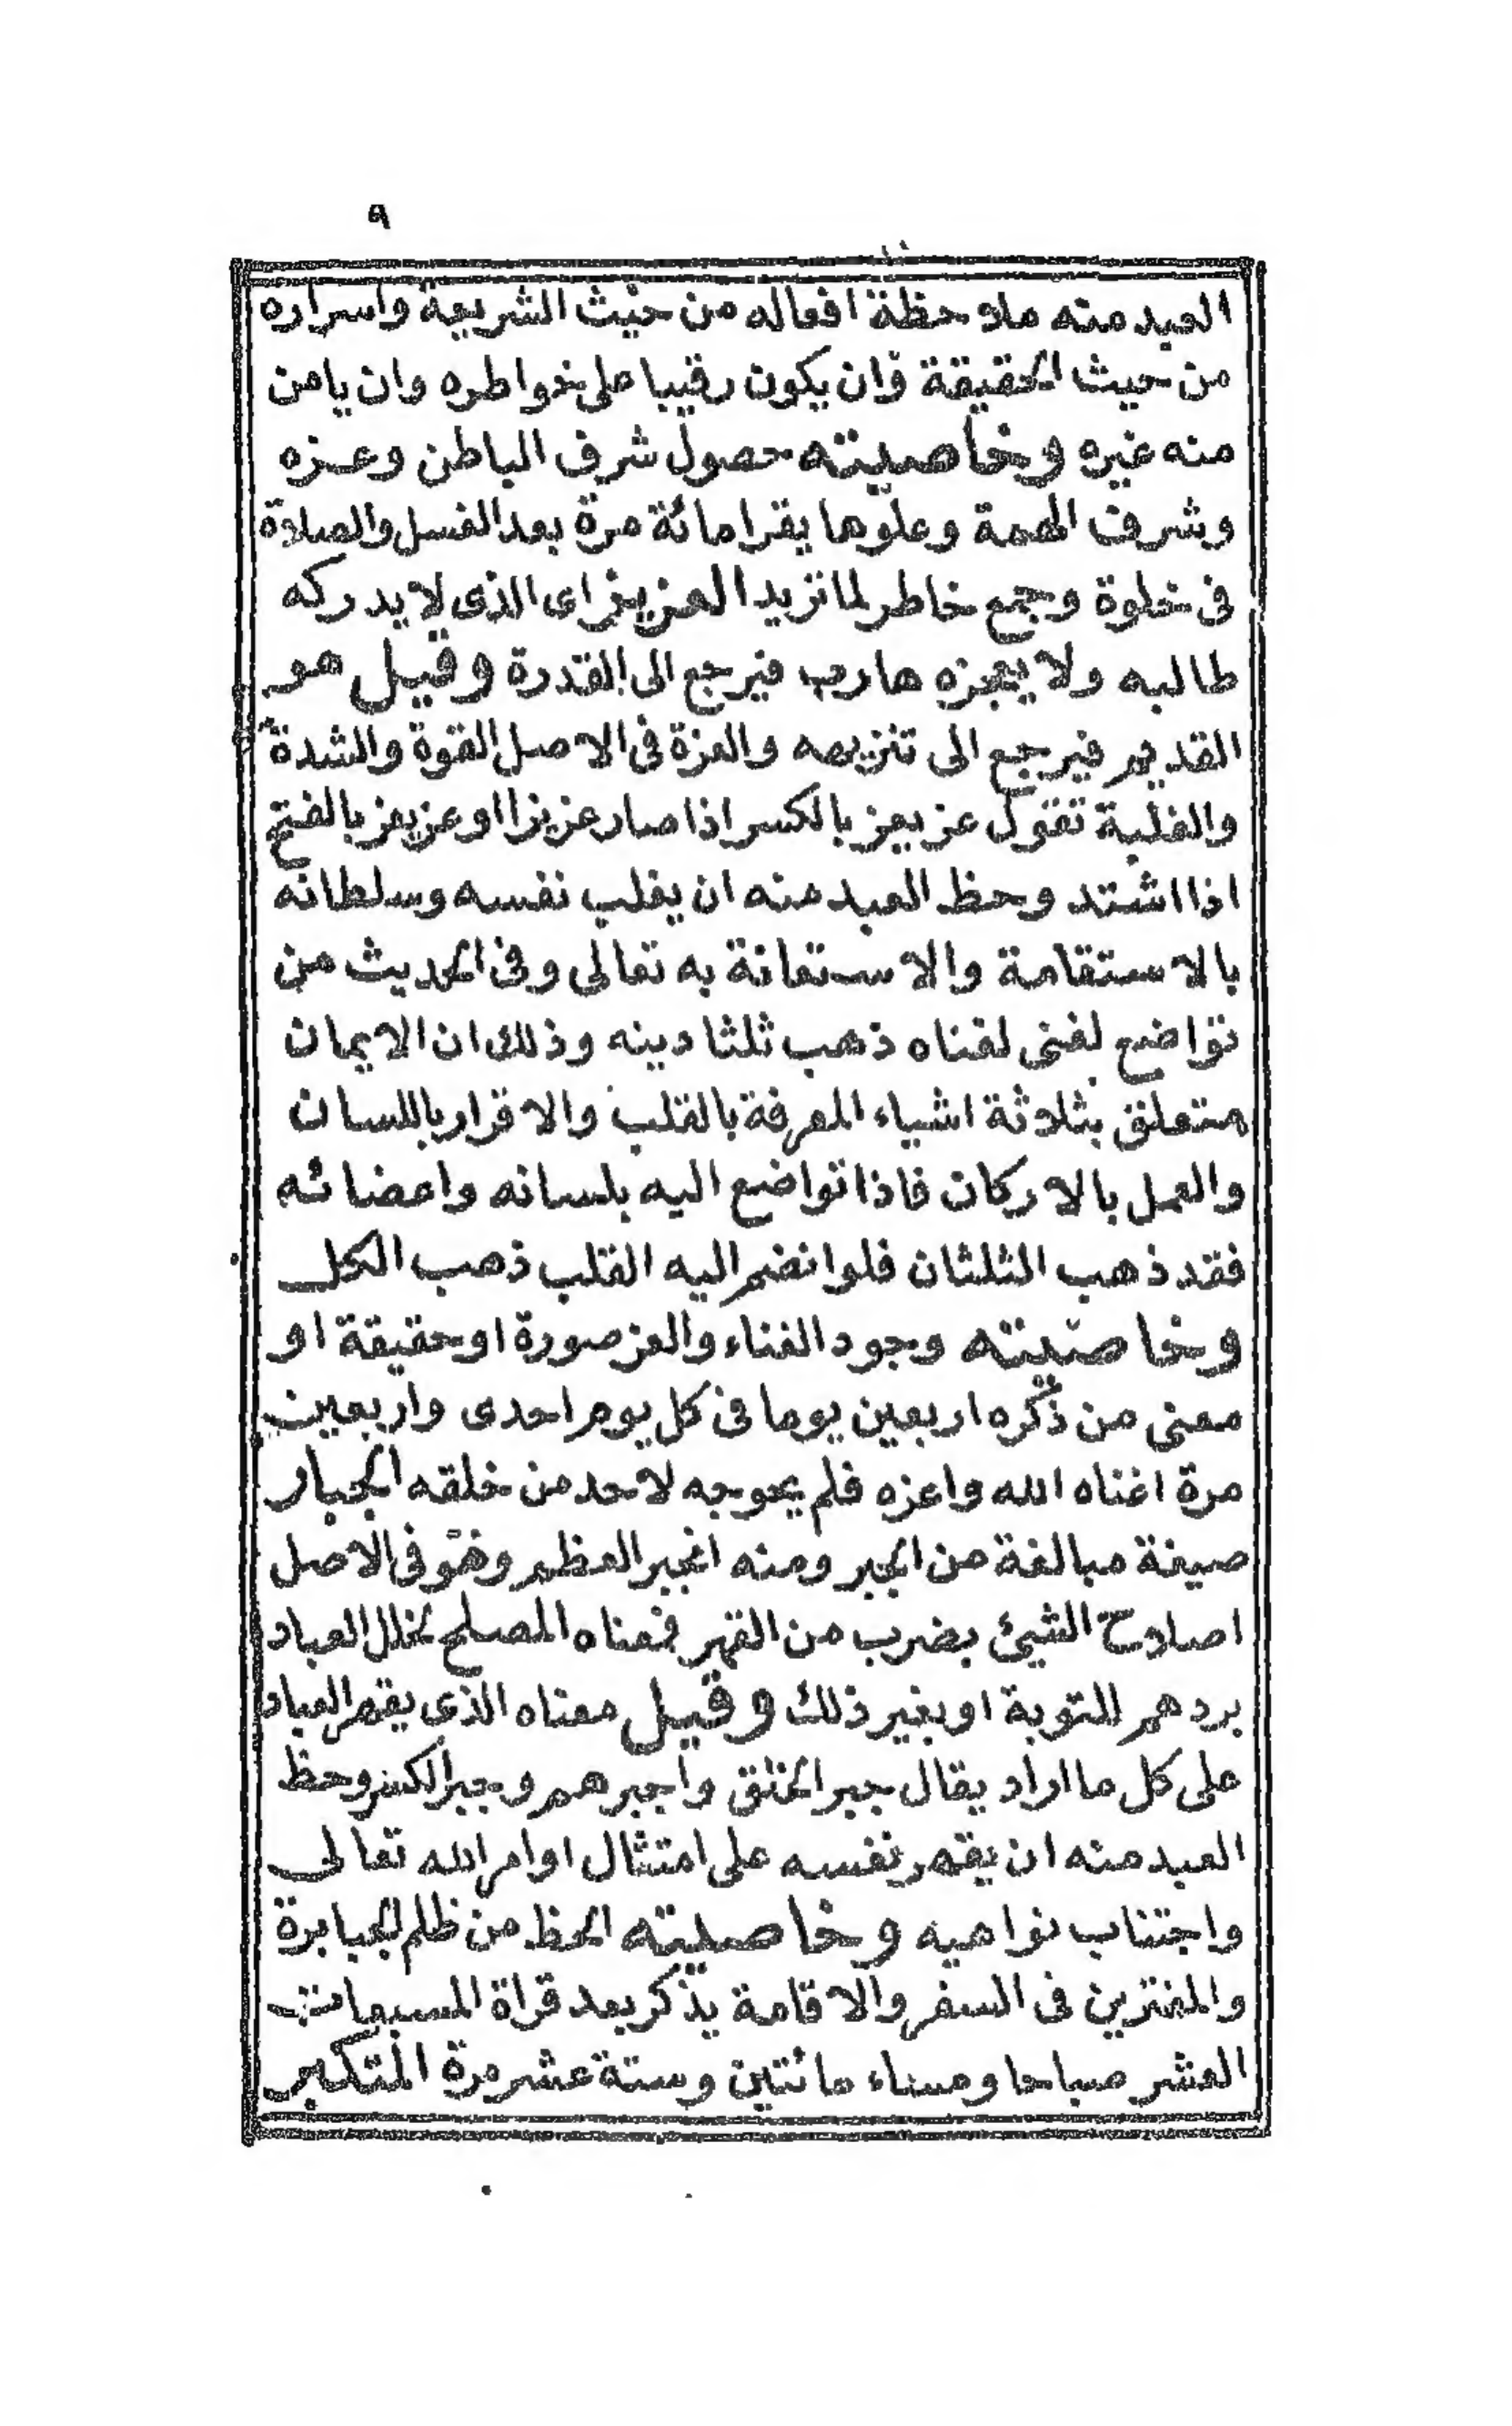 ٩
العبد منه ملاحظة افعاله من حيث الشريعة واسراره
من حيث الحقيقة وان يكون رقيبا على خواطره وان يامن
منه غيره وخاصيته حصول شرف الباطن وعزه
وشرف الهمة وعلوها يقرا مائة مرة بعد الغسل والصلاة
فى خلوة وجمع خاطر لما تريد العزيز اى الذى لا يدركه
طالبه ولا يعجزه هارب فيرجع الى القدرة وقيل هو
القديم فيرجع الى تنزيهه والعزة فى الاصل القوة والشدة
والغلبة تقول عز يعز بالكسر اذا صار عزيزا او عز يعز بالفتح
اذا اشتد وحظ العبد منه ان يغلب نفسه وسلطانه
بالاستقامة والاستعانة به تعالى وفى الحديث من
تواضع لغنى لغناه ذهب ثلثا دينه وذلك ان الايمان
متعلق بثلاثة اشياء المعرفة بالقلب والاقرار باللسان
والعمل بالاركان فاذا تواضع اليه بلسانه واعضائه
فقد ذهب الثلثان فلو انضم اليه القلب ذهب الكل
وخاصيته وجود الغناء والعز صورة او حقيقة او
معنى من ذكره اربعين يوما فى كل يوم احدى واربعين
مرة اغناه الله واعزه فلم يحوجه لاحد من خلقه الجبار
صيغة مبالغة من الجبر ومنه انجبر العظم وهو فى الاصل
اصلاح الشيئ بضرب من القهر فمعناه المصلح لخلل العباد
بردهم للتوبة او بغير ذلك وقيل معناه الذى يقهر العباد
على كل ما اراد يقال جبر الخلق واجبرهم وجبر الكسر وحظ
العبد منه ان يقهر نفسه على امتثال اوامر الله تعالى
واجتناب نواهيه وخاصيته الحظ من ظلم الجبابرة
والمعتزين فى السفر والاقامة يذكر بعد قراة المسبعات
العشر صباحا ومساء مائتين وستة عشر مرة المتكبر